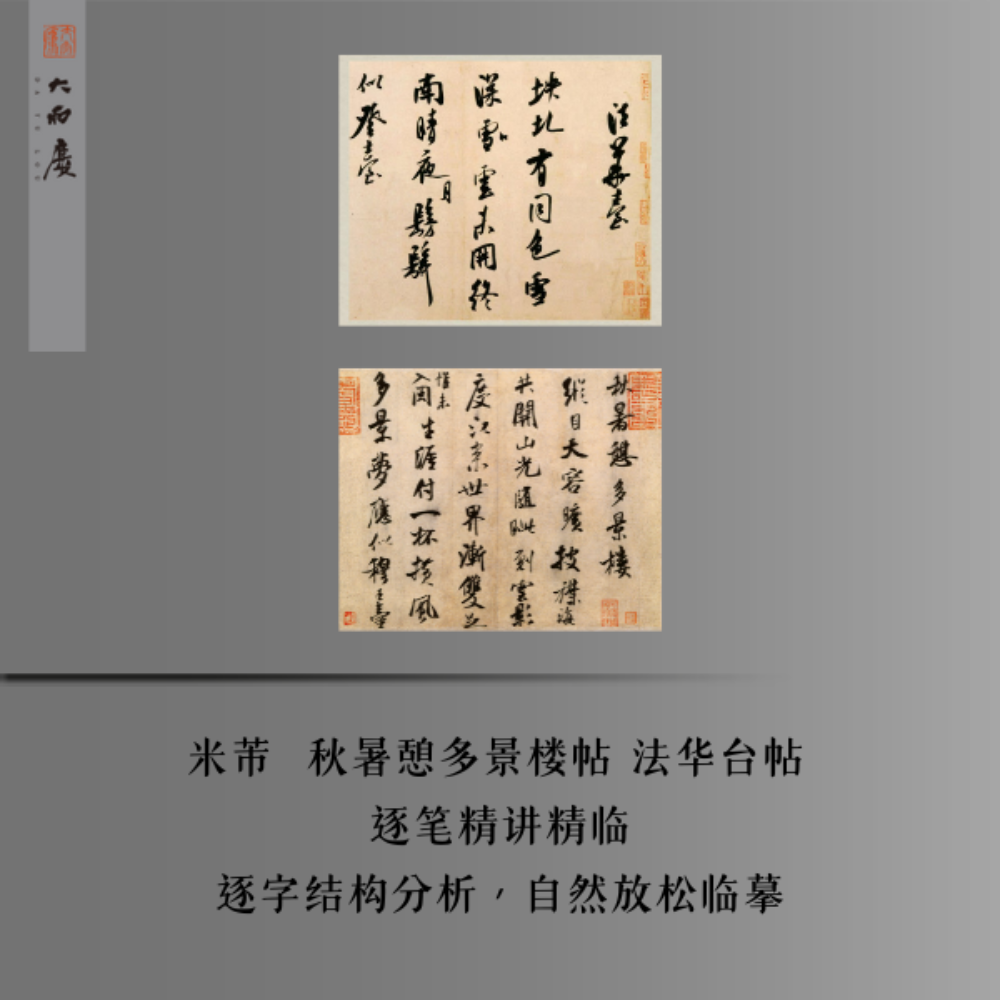 大雨度
法华臺
坱圠方同色雪
深雲未開終
南晴夜月髣髴
似登臺
秋暑憩多景楼
縱目天容曠披襟海
共開山光隨眦到雲影
度江来世界漸雙足
入西生涯付一杯横風
惟未
多景夢應似穆王臺
米芾 秋暑憩多景楼帖 法华台帖
逐笔精讲精临
逐字结构分析，自然放松临摹